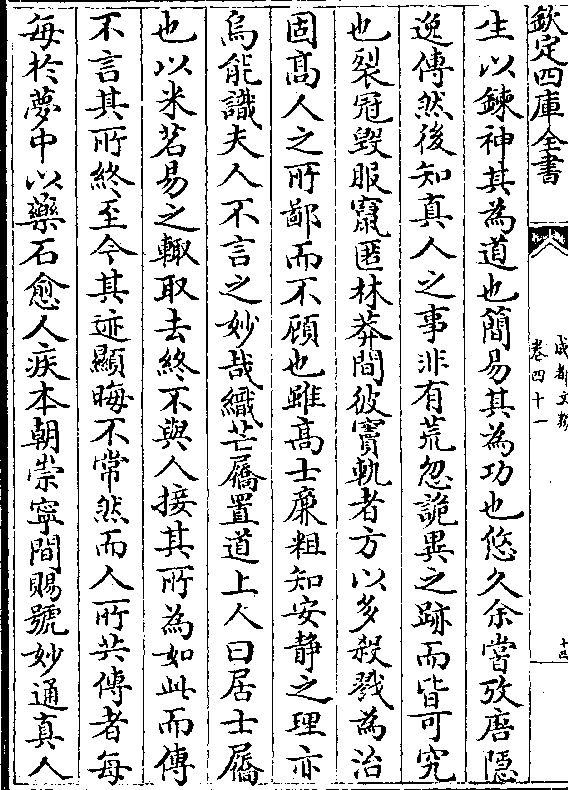 欽定四庫全書
成都文類
卷四十一
十四
生以鍊神其為道也簡易其為功也悠久余嘗攷唐隱
逸傳然後知真人之事非有荒忽詭異之跡而皆可究
也裂冠毀服竄匿林莽間彼竇軌者方以多殺戮為治
固髙人之所鄙而不顧也雖髙士亷粗知安静之理亦
烏能識夫人不言之妙哉織芒屩置道上人曰居士屩
也以米茗易之輙取去終不與人接其所為如此而傳
不言其所終至今其迹顯晦不常然而人所共傳者每
每於夢中以藥石愈人疾本朝崇寧間賜號妙通真人